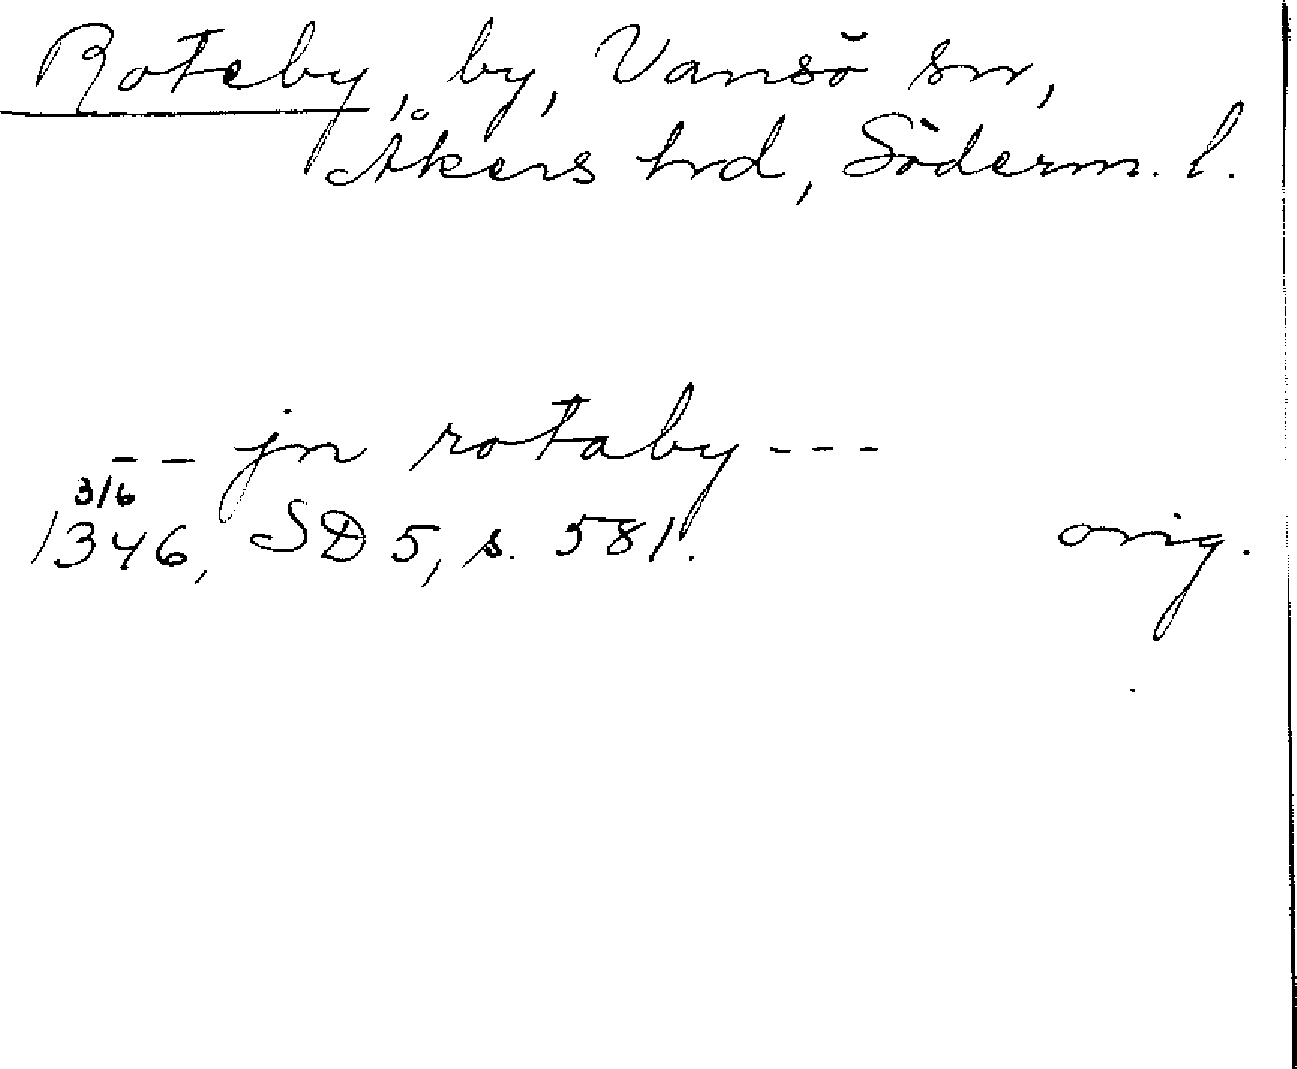 Roteby, by, Vansö sn,
Åkers hrd, Söderm. l.
-- jn rotaby ---
3/6
1346, SD 5, s. 581.
orig.